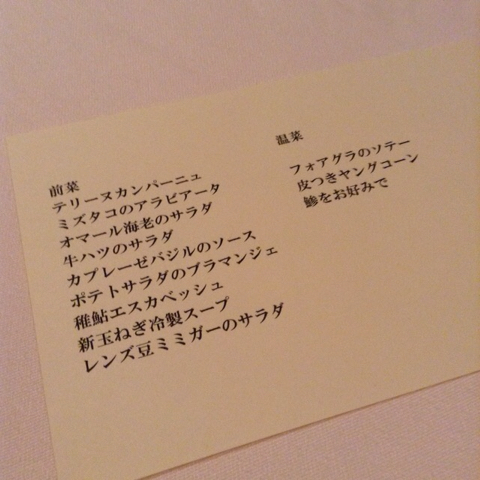 前菜
テリーヌカンパーニュ
ミズタコのアラビアータ
オマール海老のサラダ
牛ハツのサラダ
カプレーゼバジルのソース
ポテトサラダのブラマンジェ
稚鮎エスカベッシュ
新玉ねぎ冷製スープ
レンズ豆ミミガーのサラダ
温菜
フォアグラのソテー
皮つきヤングコーン
鯵をお好みで